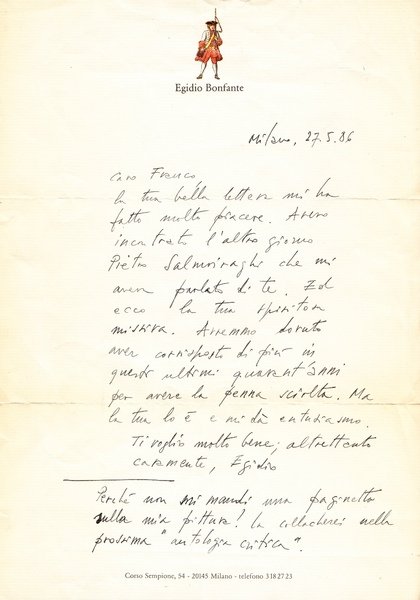 Egidio Bonfante
Milano, 27.5.86
caro Franco,
la tua bella lettera mi ha
fatto molto piacere. Avevo
incontrato l'altro giorno
Pietro Salmoiraghi che mi
aveva parlato di te. Ed
ecco la tua spiritosa
missiva. Avremmo dovuto
aver corrisposto di più in
questi ultimi quarant'anni
per avere la penna sciolta. Ma
la tua lo è e mi dà entusiasmo.
Ti voglio molto bene; altrettanto
caramente, Egidio
Perché non mi mandi una paginetta
sulla mia pittura! la collocherei nella
prossima "antologia critica".
Corso Sempione, 54 - 20145 Milano - telefono 3182723